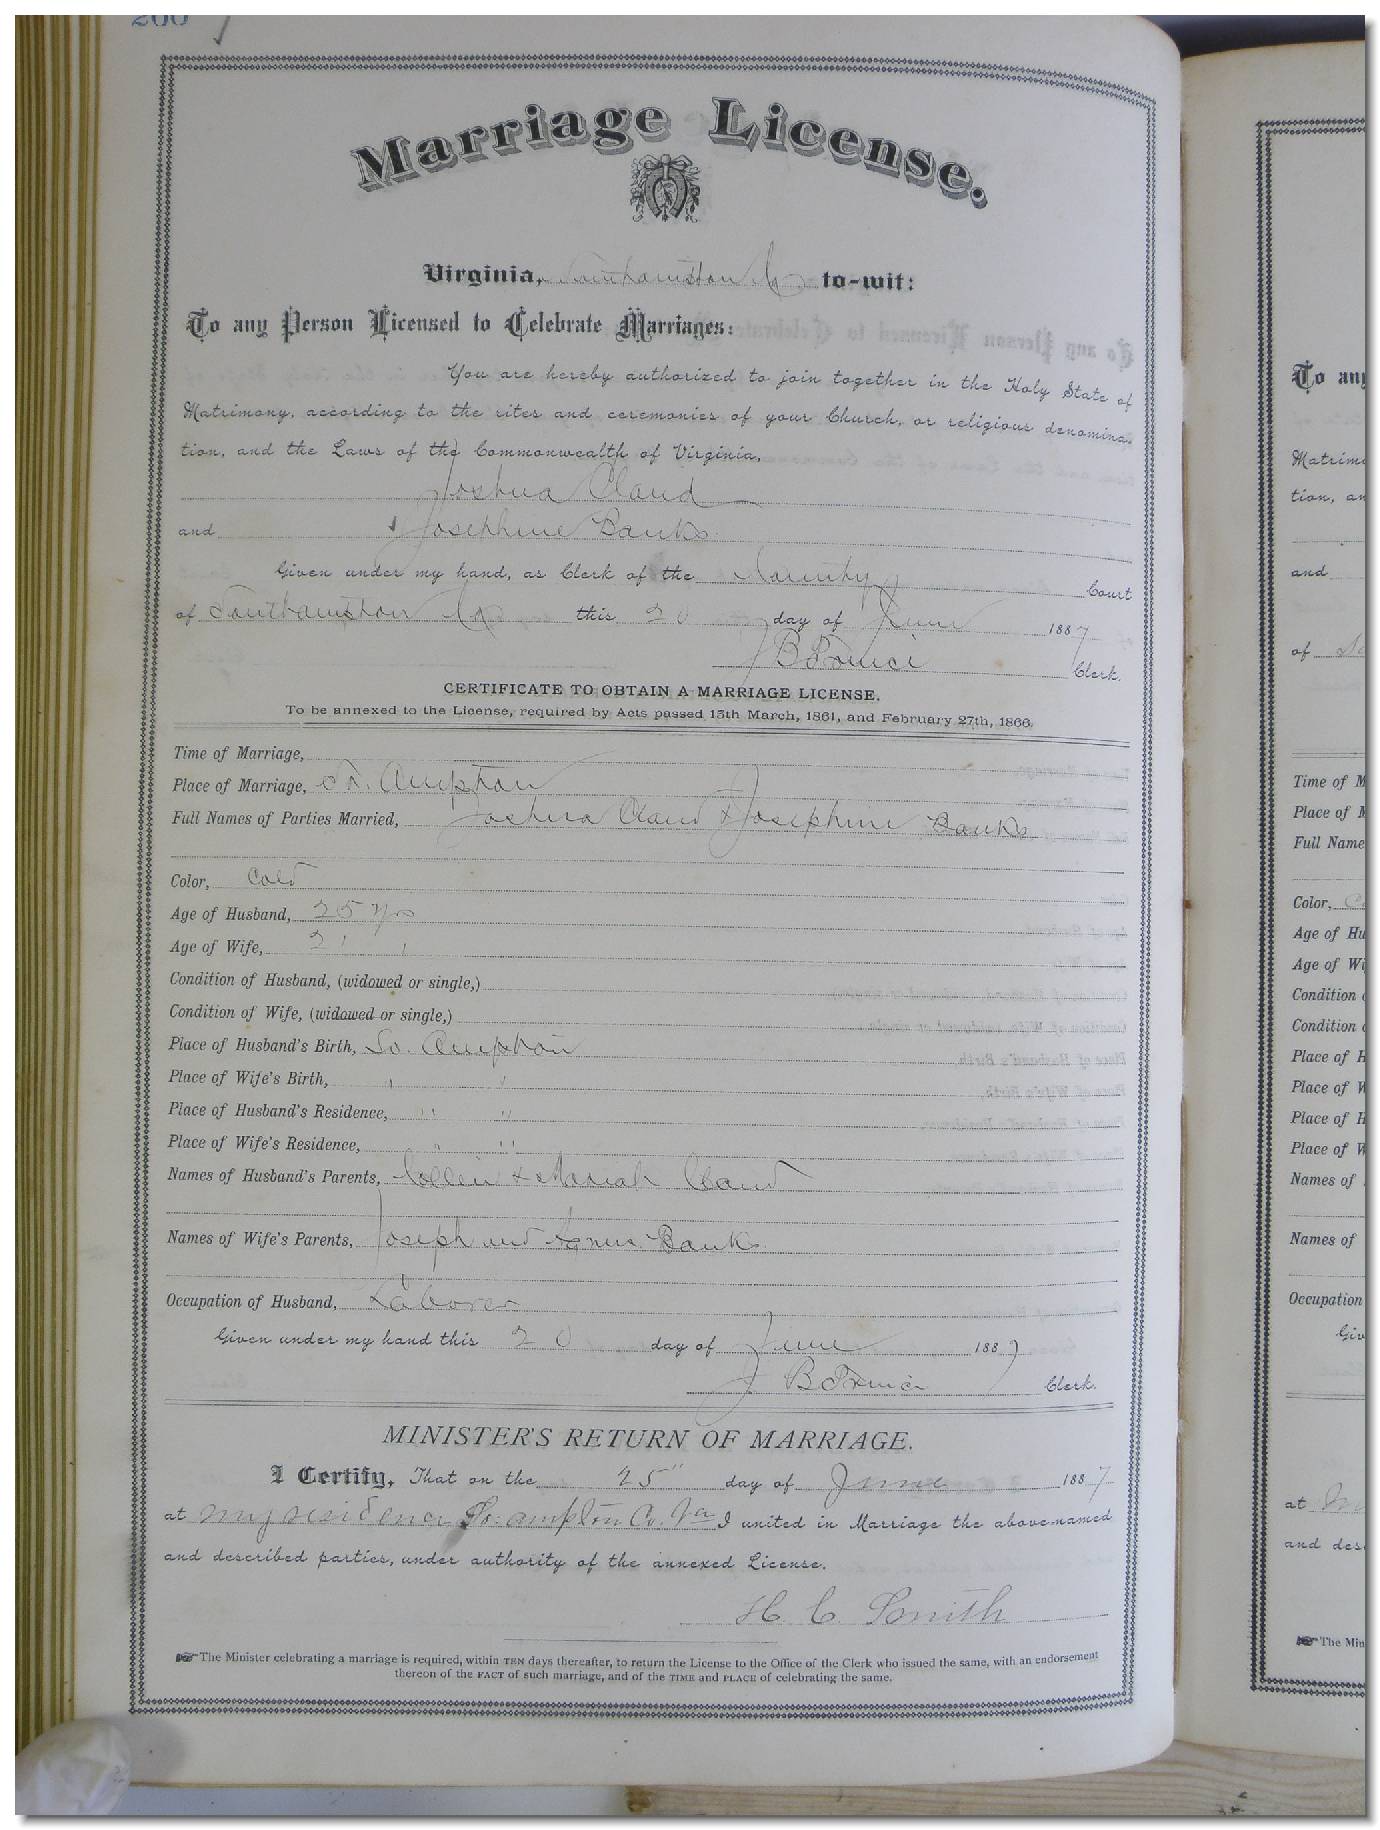 200
Marriage License.
Virginia, Southampton Co to-wit:
To any Person Licensed to Celebrate Marriages:
You are hereby authorized to join together in the Holy State of
Matrimony, according to the rites and ceremonies of your Church, or religious denomina-
tion, and the Laws of the Commonwealth of Virginia,
Joshua Claud
and Josephine Banks
Given under my hand, as Clerk of the County Court
of Southampton Co this 20 day of June 1887
J B Clerk.
CERTIFICATE TO OBTAIN A MARRIAGE LICENSE.
To be annexed to the License, required by Acts passed 15th March, 1861, and February 27th, 1866.
Time of Marriage,
Place of Marriage, So. Ampton
Full Names of Parties Married, Joshua Claud & Josephine Banks
Color, Cold
Age of Husband, 25 yrs
Age of Wife, 21 "
Condition of Husband, (widowed or single,)
Condition of Wife, (widowed or single,)
Place of Husband's Birth, So. Ampton
Place of Wife's Birth, " "
Place of Husband's Residence, " "
Place of Wife's Residence, " "
Names of Husband's Parents, & Mariah Claud
Names of Wife's Parents, Joseph and Banks
Occupation of Husband, Laborer
Given under my hand this 20 day of June 1887
J B Clerk.
MINISTER'S RETURN OF MARRIAGE.
I Certify, That on the 25" day of June 1887
at my residence So. ampton Co. Va I united in Marriage the above-named
and described parties, under authority of the annexed License.
H. C. Smith
The Minister celebrating a marriage is required, within TEN days thereafter, to return the License to the Office of the Clerk who issued the same, with an endorsement
thereon of the FACT of such marriage, and of the TIME and PLACE of celebrating the same.
To any
Matrim
tion, an
and
of
Time of M
Place of M
Full Name
Color,
Age of Hu
Age of Wi
Condition
Condition
Place of H
Place of W
Place of H
Place of W
Names of
Names of
Occupation
Giv
at
and des
The Min